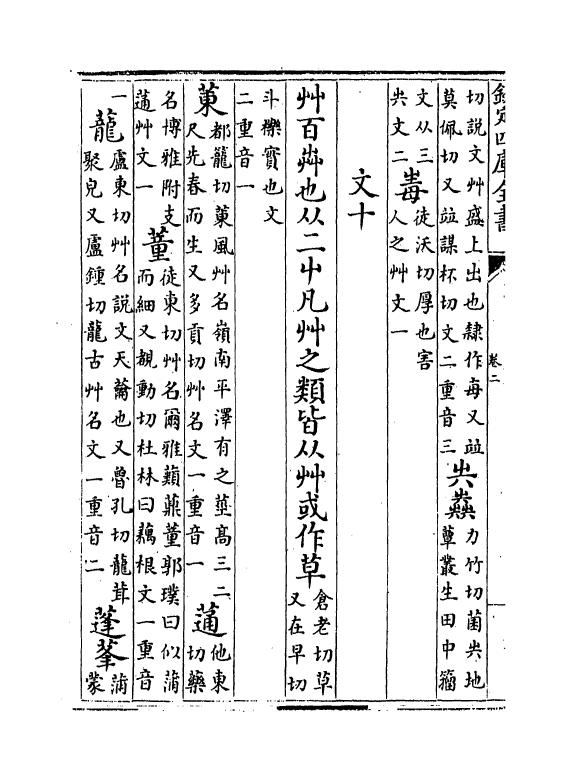 欽定四庫全書
卷二
切說文艸盛上出也隸作每又竝
莫佩切又竝謀杯切文二重音三
圥𧄲
力竹切菌圥地
蕈叢生田中籀
文从三
圥文二
毒
徒沃切厚也害
人之艸文一
文十
艸百芔也从二屮凡艸之類皆从艸或作草
倉老切草
又在早切
斗櫟實也文
二重音一
菄
都籠切菄風艸名嶺南平澤有之莖高三二
尺先春而生又多貢切艸名文一重音一
蓪
他東
切藥
名博雅附支
蓪艸文一
董
徒東切艸名爾雅蘱薡董郭璞曰似蒲
而細又覩動切杜林曰藕根文一重音
一
蘢
盧東切艸名說文天蘥也又魯孔切蘢茸
聚皃又盧鍾切蘢古艸名文一重音二
蓬莑
蒲
蒙